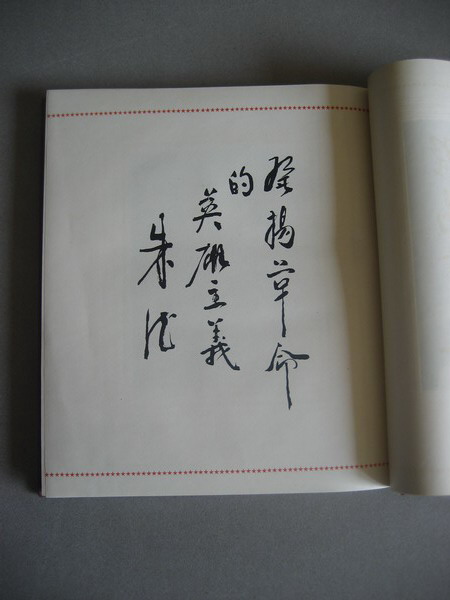 發揚革命
的
英雄主義
朱德